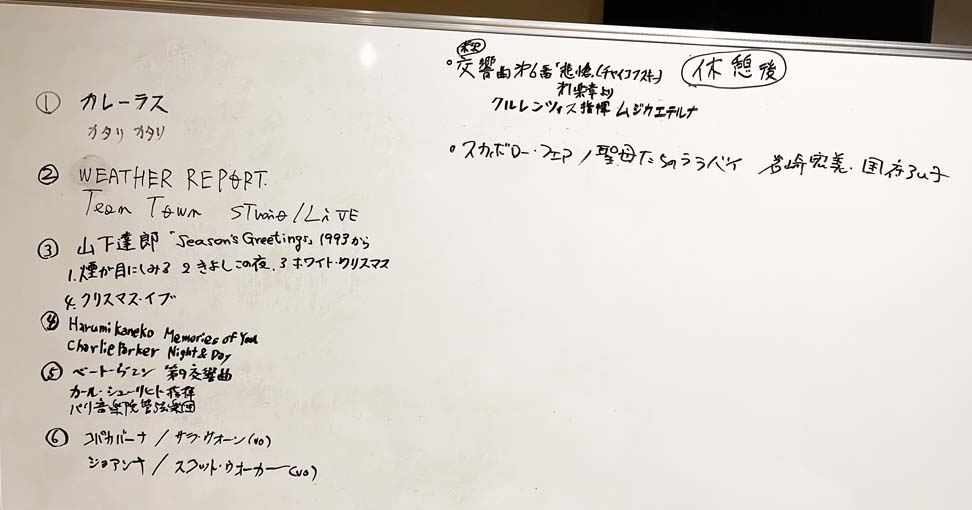 ① カレーラス
カタリ カタリ
② WEATHER REPORT.
Teen Town STUDIO/LiVE
③ 山下達郎「Season's Greetings」1993から
1.煙が目にしみる 2 きよしこの夜. 3 ホワイト・クリスマス
4.クリスマス・イブ
④ Harumi Kaneko Memories of You
Charlie Parker Night & Day
⑤ ベートーヴェン 第9交響曲
カール・シューリヒト指揮
パリ音楽院管弦楽団
⑥ コパカバーナ / サラ・ヴォーン(vo)
ジョアンナ / スコット・ウォーカー(vo)
休憩後
○交響曲第6番「悲愴」(チャイコフスキー)
第1楽章より
クルレンツィス指揮 ムジカエテルナ
○スカボロー・フェア / 聖母たちのララバイ 岩崎宏美. 国府弘子